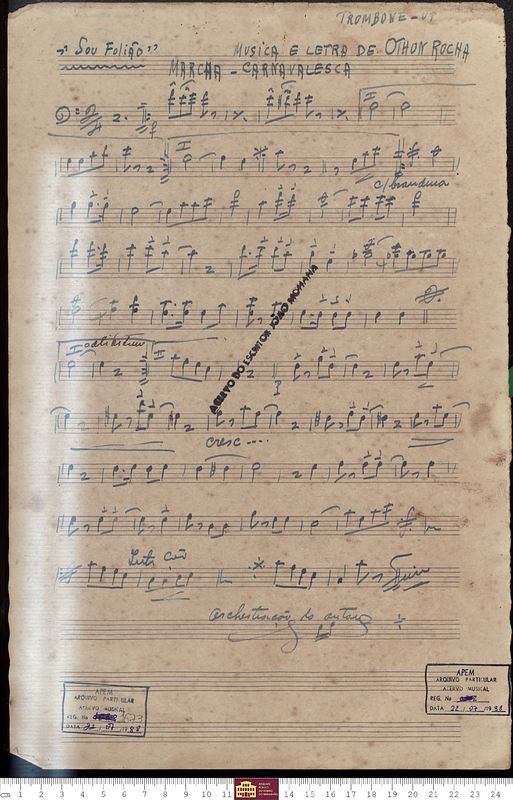 TROMBONE - UT
"Sou Folião" MUSICA E LETRA DE OTHON ROCHA
MARCHA - CARNAVALESCA
I
I
c/ brandura
ACERVO DO ESCRITOR JOÃO MOHANA
I
II
cresc ----
Fim
orchestração do autor
APEM
ARQUIVO PARTICULAR
ACERVO MUSICAL
REG. No
DATA 22 / 07 / 1988
APEM
ARQUIVO PARTICULAR
ACERVO MUSICAL
REG. No
DATA 22 / 07 / 1988
cm 1 2 3 4 5 6 7 8 9 10 11 12 13 14 15 16 17 18 19 20 21 22 23 24